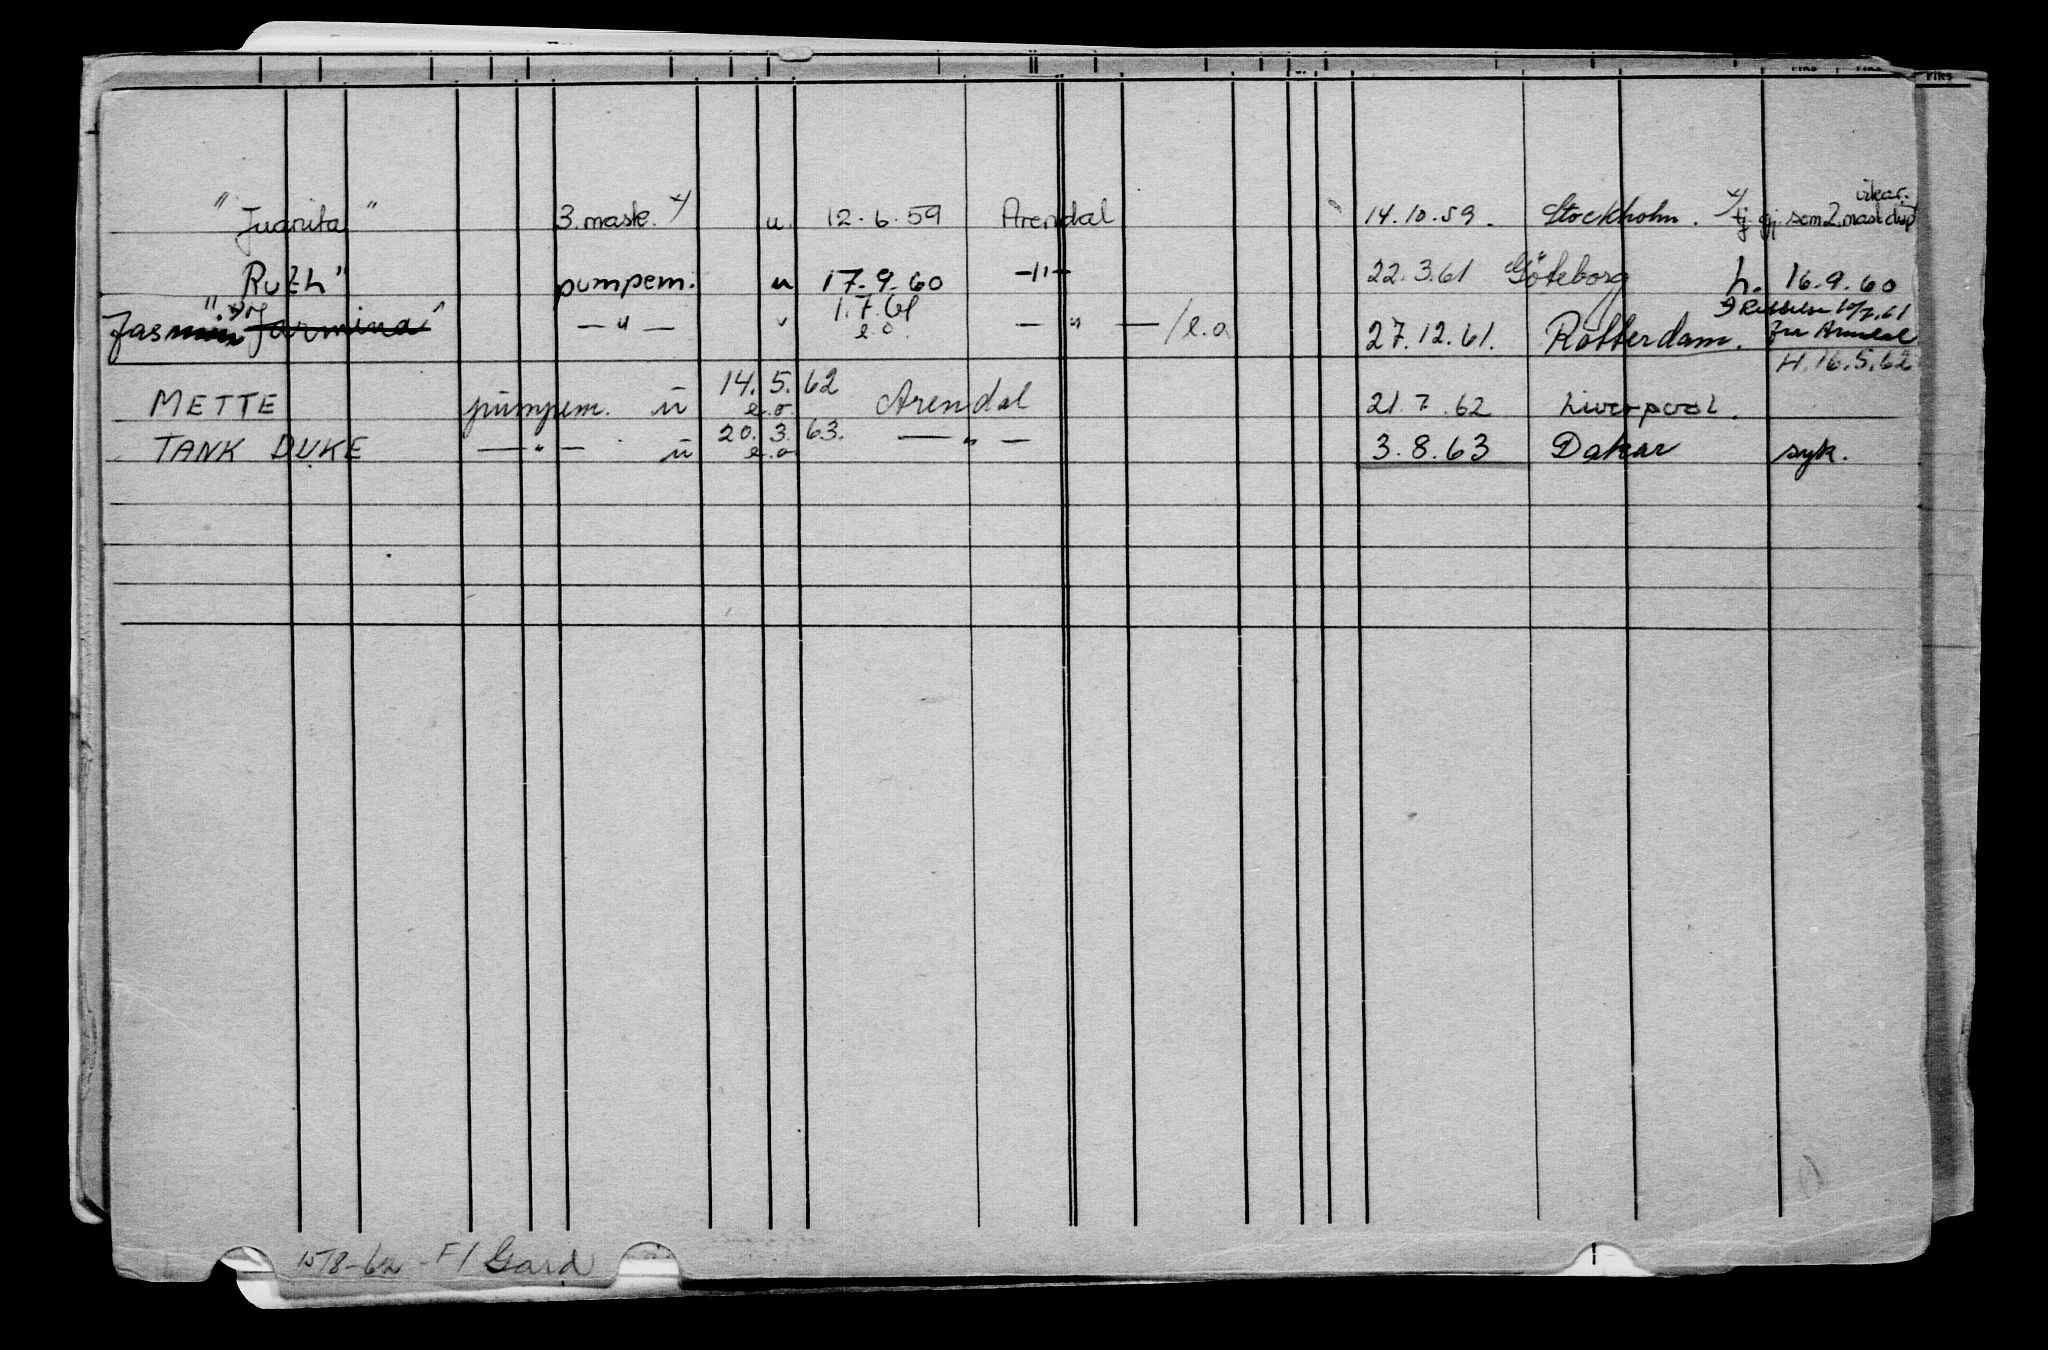 FIRS
"Juanita" 3. mask. x/ u. 12.6.59 Arendal 14.10.59. Stockholm. x/ tj gj. som 2. mask disp vikar.
Ruth" pumpem. u 17.9.60 —"— 22.3.61 Göteborg h. 16.9.60
"Jasmin —"— " 1.7.61 e.o. —"— /e.o 27.12.61. Rotterdam. fra Arendal
H. 16.5.62
METTE pumpem. u 14.5.62 e.o Arendal 21.7.62 Liverpool.
TANK DUKE —"— u 20.3.63. e.o —"— 3.8.63 Dakar syk.
15/8-62 - F/ Gard